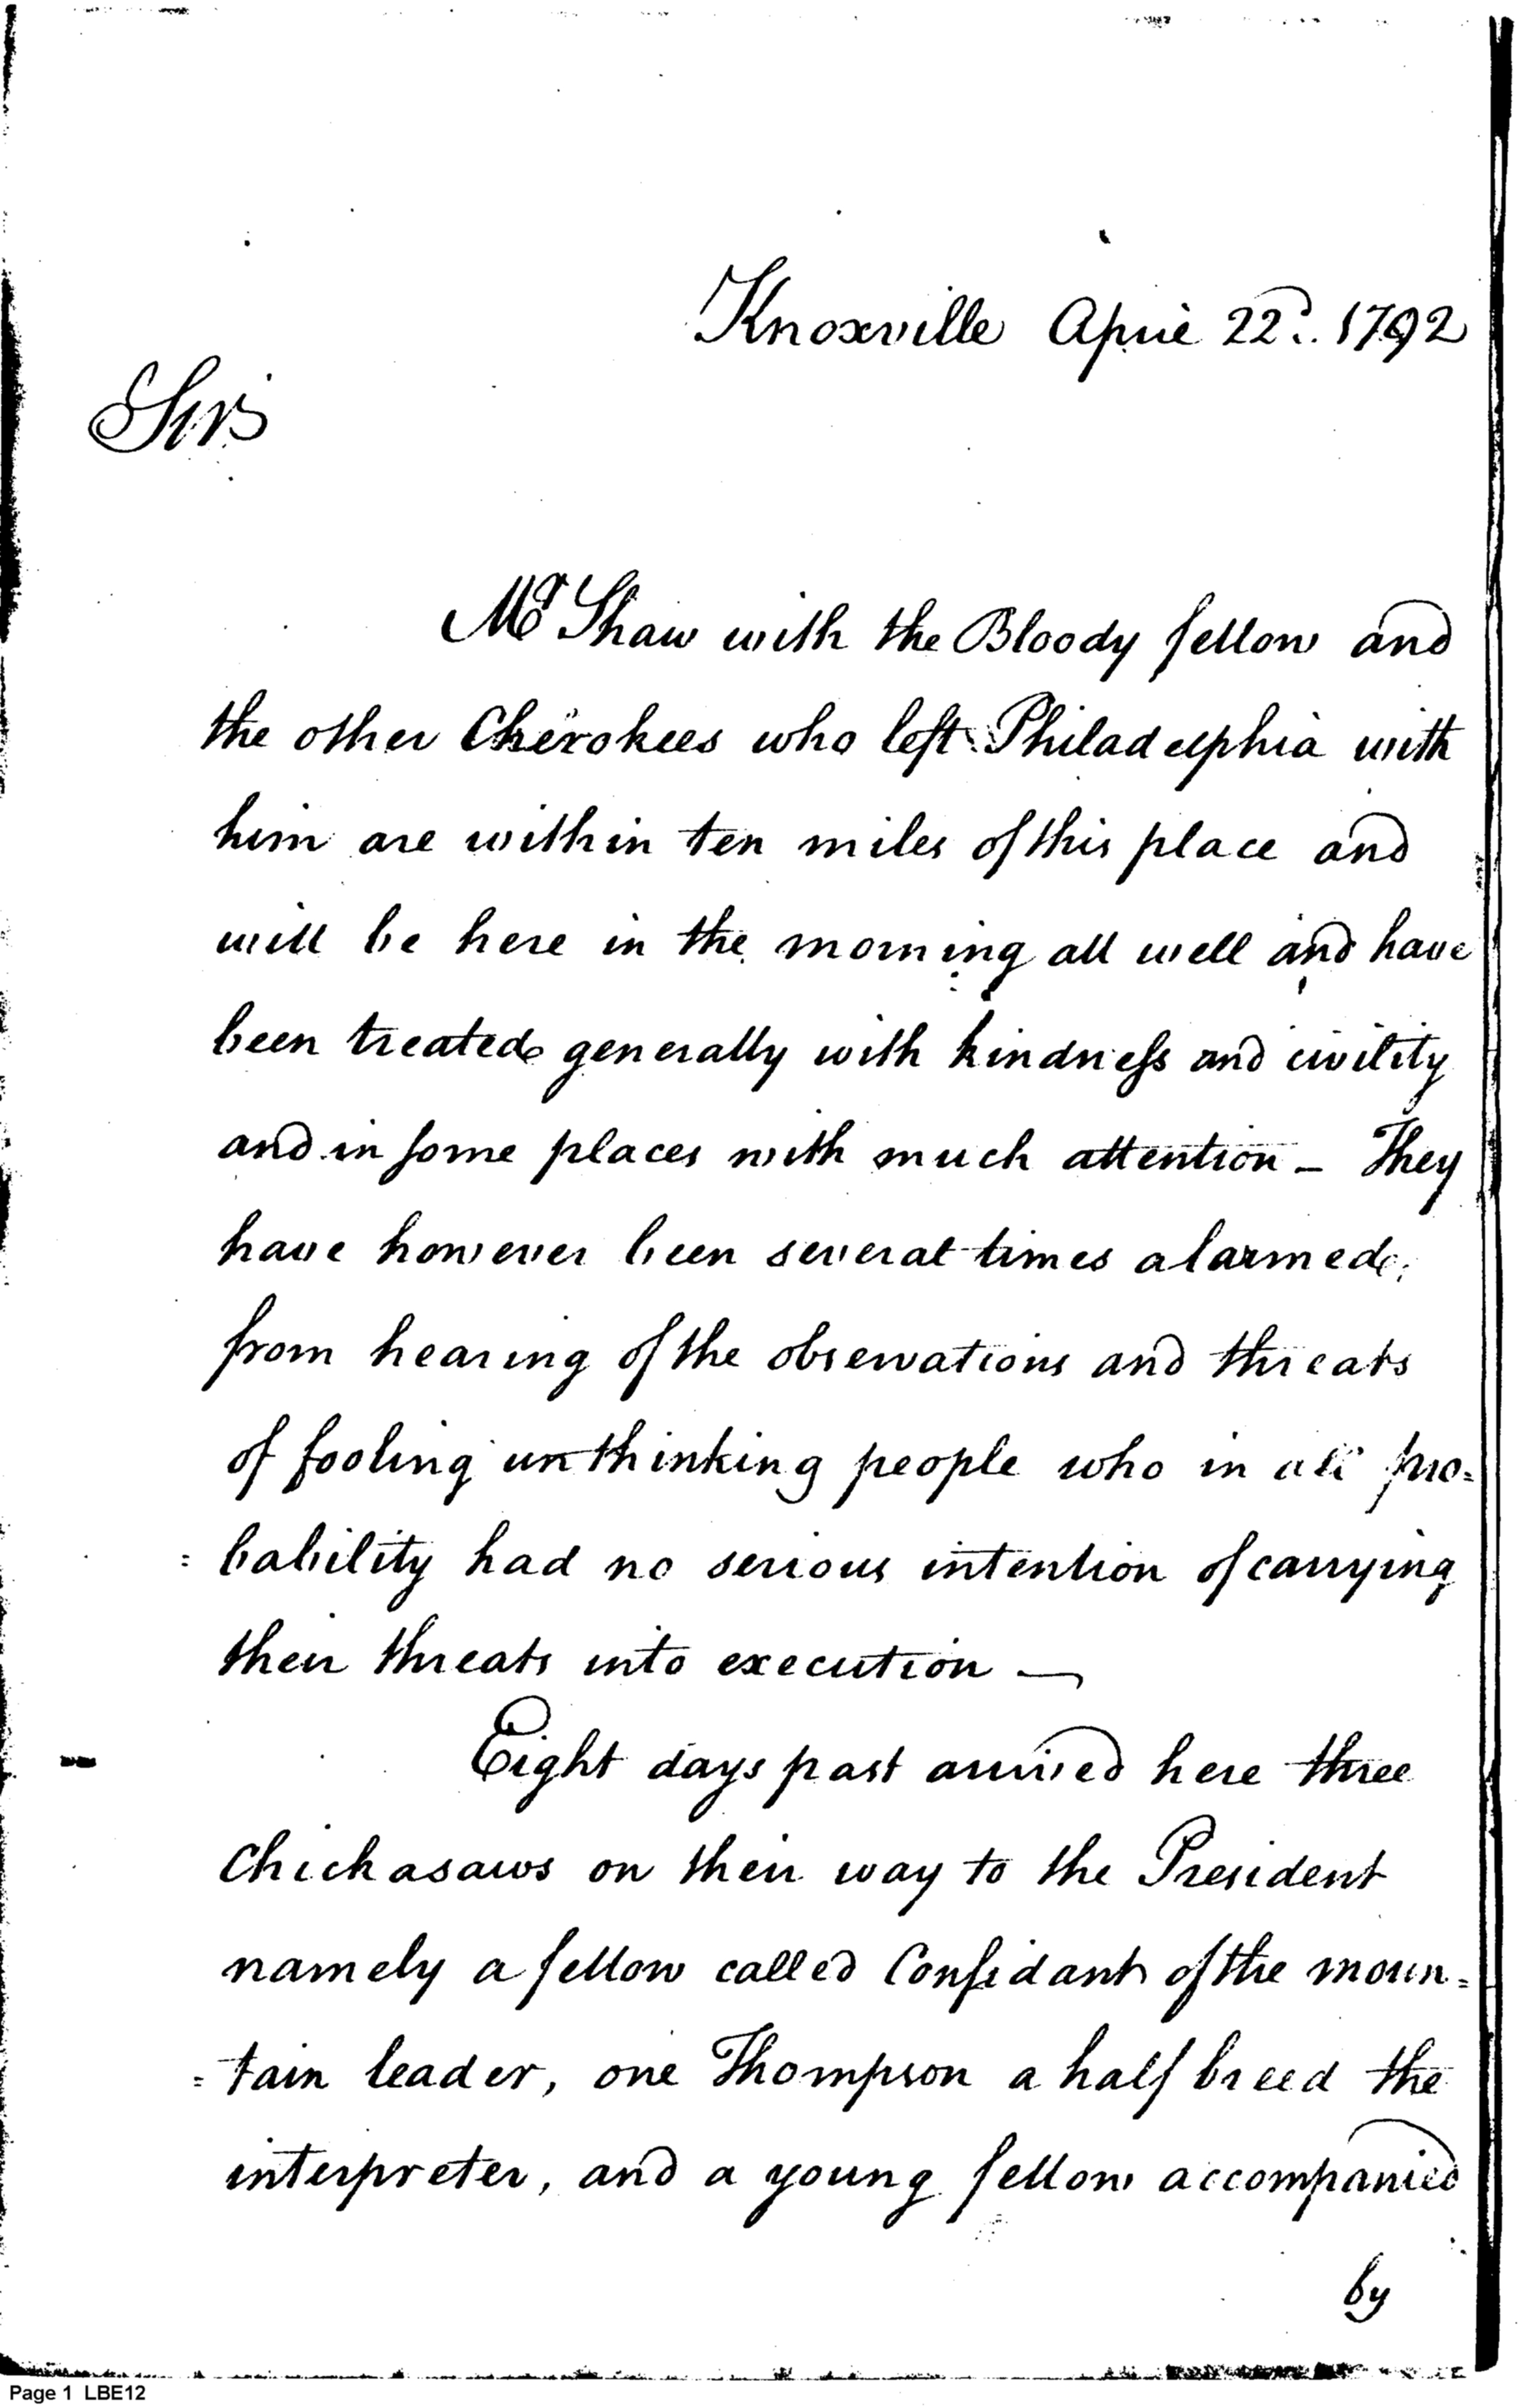 Knoxville April 22d. 1792
Sir
Mr Shaw with the Bloody fellow and
the other Cherokees who left Philadelphia with
him are within ten miles of this place and
will be here in the morning all well and have
been treated generally with kindness and civility
and in some places with much attention - They
have however been several times alarmed
from hearing of the observations and threats
of fooling unthinking people who in all pro=
=bability had no serious intention of carrying
their threats into execution —
Eight days past arrived here three
Chickasaws on their way to the President
namely a fellow called Confidant of the moun=
=tain leader, one Thompson a half breed the
interpreter, and a young fellow accompanied
by
Page 1 LBE12